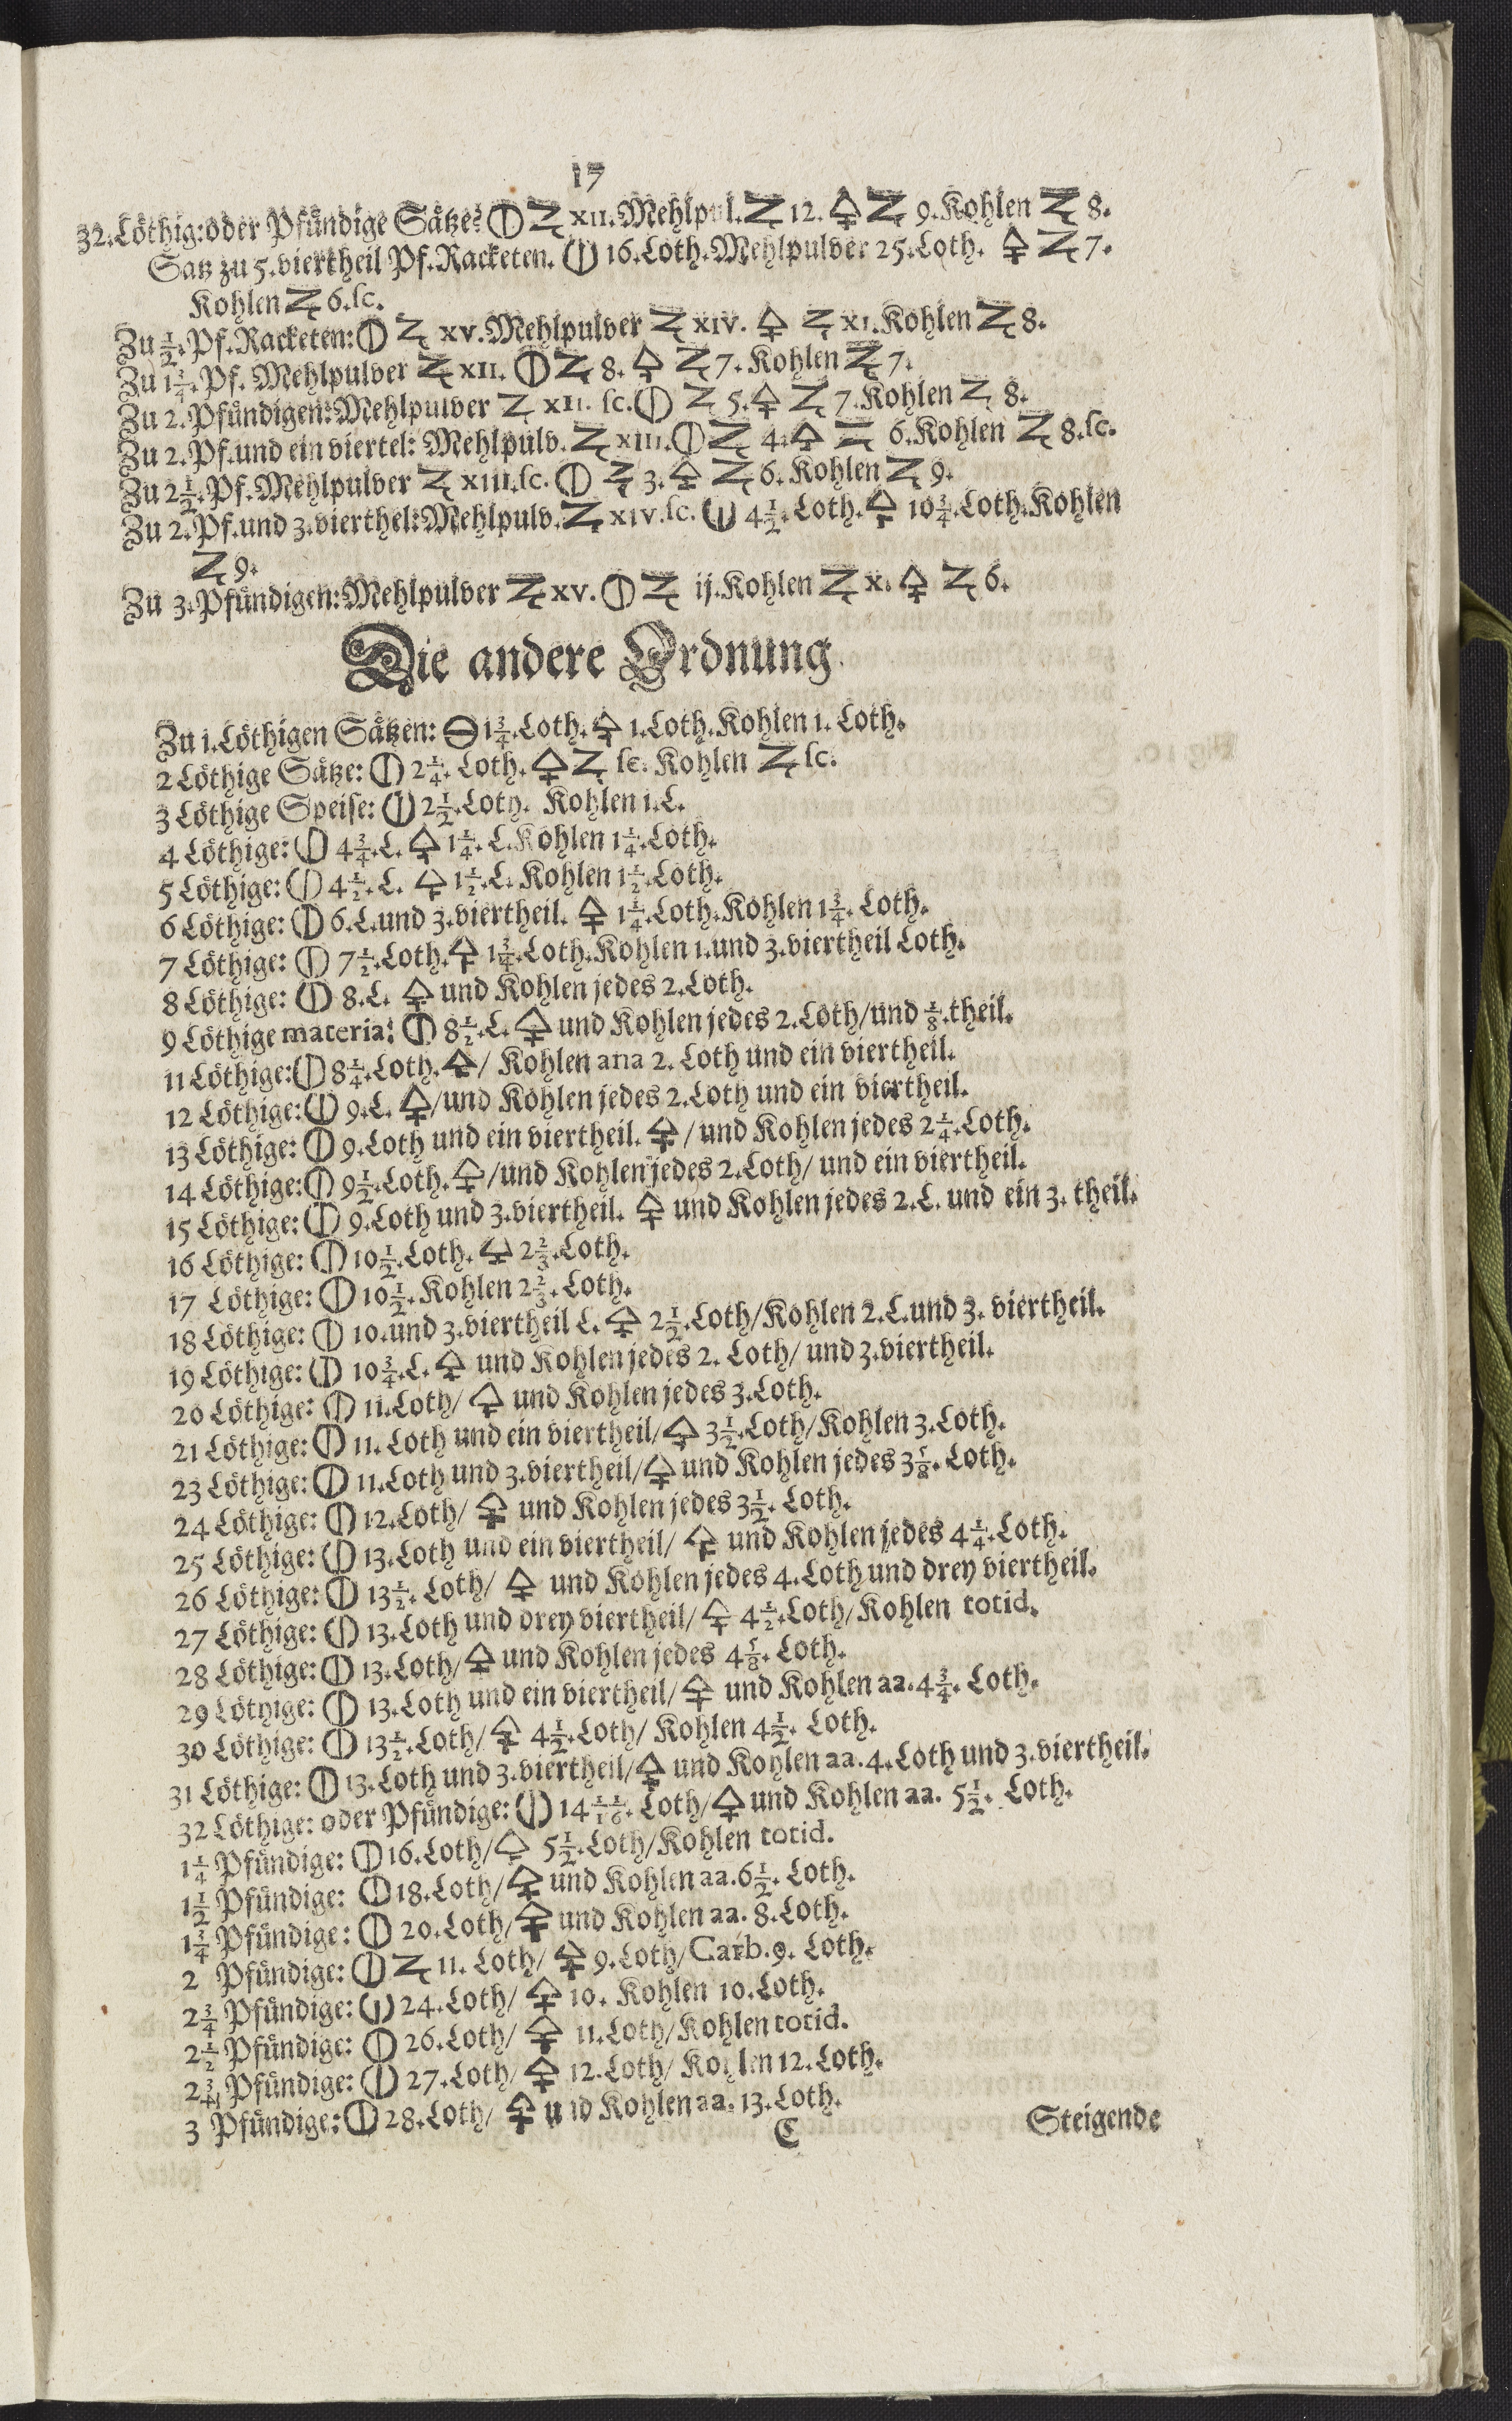 17
32. Löthig: oder Pfündige Sätze: 🜕 Ʒ XII. Mehlpul. Ʒ 12. 🜍 Ʒ 9. Kohlen Ʒ 8.
Satz zu 5. viertheil Pf. Racketen. 🜕 16. Loth. Mehlpulver 25. Loth. 🜍 Ʒ 7.
Kohlen Ʒ 6. ſc.
Zu ½. Pf. Racketen: 🜕 Ʒ XV. Mehlpulver Ʒ XIV. 🜍 Ʒ XI. Kohlen Ʒ 8.
Zu 1¾. Pf. Mehlpulver Ʒ XII. 🜕 Ʒ 8. 🜍 Ʒ 7. Kohlen Ʒ 7.
Zu 2. Pfündigen: Mehlpulver Ʒ XII. ſc. 🜕 Ʒ 5. 🜍 Ʒ 7. Kohlen Ʒ 8.
Zu 2. Pf. und ein viertel: Mehlpulv. Ʒ XIII. 🜕 Ʒ 4. 🜍 Ʒ 6. Kohlen Ʒ 8. ſc.
Zu 2½. Pf. Mehlpulver Ʒ XIII. ſc. 🜕 Ʒ 3. 🜍 Ʒ 6. Kohlen Ʒ 9.
Zu 2. Pf. und 3. vierthel: Mehlpulv. Ʒ XIV. ſc. 🜕 4½. Loth. 🜍 10¾. Loth. Kohlen
Ʒ 9.
Zu 3. Pfündigen: Mehlpulver Ʒ XV. 🜕 Ʒ ij. Kohlen Ʒ X. 🜍 Ʒ 6.
Die andere Ordnung.
Zu 1. Löthigen Sätzen: 🜔 1¾. Loth. 🜍 1. Loth. Kohlen 1. Loth.
2 Löthige Sätze: 🜕 2¼. Loth. 🜍 Ʒ ſc. Kohlen Ʒ ſc.
3 Löthige Speiſe: 🜕 2½. Loth. Kohlen 1. L.
4 Löthige: 🜕 4¾. L. 🜍 1¼. L. Kohlen 1¼. Loth.
5 Löthige: 🜕 4½. L. 🜍 1½. L. Kohlen 1½. Loth.
6 Löthige: 🜕 6. L. und 3. viertheil. 🜍 1¼. Loth. Kohlen 1¾. Loth.
7 Löthige: 🜕 7½. Loth. 🜍 1¾. Loth. Kohlen 1. und 3. viertheil Loth.
8 Löthige: 🜕 8. L. 🜍 und Kohlen jedes 2. Loth.
9 Löthige materia: 🜕 8½. L. 🜍 und Kohlen jedes 2. Loth/ und ⅛. theil.
11 Löthige: 🜕 8¼. Loth. 🜍/ Kohlen ana 2. Loth und ein viertheil.
12 Löthige: 🜕 9. L. 🜍/ und Kohlen jedes 2. Loth und ein viertheil.
13 Löthige: 🜕 9. Loth und ein viertheil. 🜍/ und Kohlen jedes 2¼. Loth.
14 Löthige: 🜕 9½. Loth. 🜍/ und Kohlen jedes 2. Loth/ und ein viertheil.
15 Löthige: 🜕 9. Loth und 3. viertheil. 🜍 und Kohlen jedes 2. L. und ein 3. theil.
16 Löthige: 🜕 10½. Loth. 🜍 2⅔. Loth.
17 Löthige: 🜕 10½. Kohlen 2⅔. Loth.
18 Löthige: 🜕 10. und 3. viertheil L. 🜍 2½. Loth/ Kohlen 2. L. und 3. viertheil.
19 Löthige: 🜕 10¾. L. 🜍 und Kohlen jedes 2. Loth/ und 3. viertheil.
20 Löthige: 🜕 11. Loth/ 🜍 und Kohlen jedes 3. Loth.
21 Löthige: 🜕 11. Loth und ein viertheil/ 🜍 3½. Loth/ Kohlen 3. Loth.
23 Löthige: 🜕 11. Loth und 3. viertheil/ 🜍 und Kohlen jedes 3⅛. Loth.
24 Löthige: 🜕 12. Loth/ 🜍 und Kohlen jedes 3½. Loth.
25 Löthige: 🜕 13. Loth und ein viertheil/ 🜍 und Kohlen jedes 4¼. Loth.
26 Löthige: 🜕 13½. Loth/ 🜍 und Kohlen jedes 4. Loth und drey viertheil.
27 Löthige: 🜕 13. Loth und drey viertheil/ 🜍 4½. Loth/ Kohlen totid.
28 Löthige: 🜕 13. Loth/ 🜍 und Kohlen jedes 4⅝. Loth.
29 Löthige: 🜕 13. Loth und ein viertheil/ 🜍 und Kohlen aa. 4¾. Loth.
30 Löthige: 🜕 13½. Loth/ 🜍 4½. Loth/ Kohlen 4½. Loth.
31 Löthige: 🜕 13. Loth und 3. viertheil/ 🜍 und Kohlen aa. 4. Loth und 3. viertheil.
32 Löthige: oder Pfündige: 🜕 14 Loth/ 🜍 und Kohlen aa. 5½. Loth.
1¼ Pfündige: 🜕 16. Loth/ 🜍 5½. Loth/ Kohlen totid.
1½ Pfündige: 🜕 18. Loth/ 🜍 und Kohlen aa. 6½. Loth.
1¾ Pfündige: 🜕 20. Loth/ 🜍 und Kohlen aa. 8. Loth.
2 Pfündige: 🜕 Ʒ 11. Loth/ 🜍 9. Loth/ Carb. 9. Loth.
2¾ Pfündige: 🜕 24. Loth/ 🜍 10. Kohlen 10. Loth.
2½ Pfündige: 🜕 26. Loth/ 🜍 11. Loth/ Kohlen totid.
2¾ Pfündige: 🜕 27. Loth/ 🜍 12. Loth/ Kohlen 12. Loth.
3 Pfündige: 🜕 28. Loth/ 🜍 und Kohlen aa. 13. Loth.
C Steigende